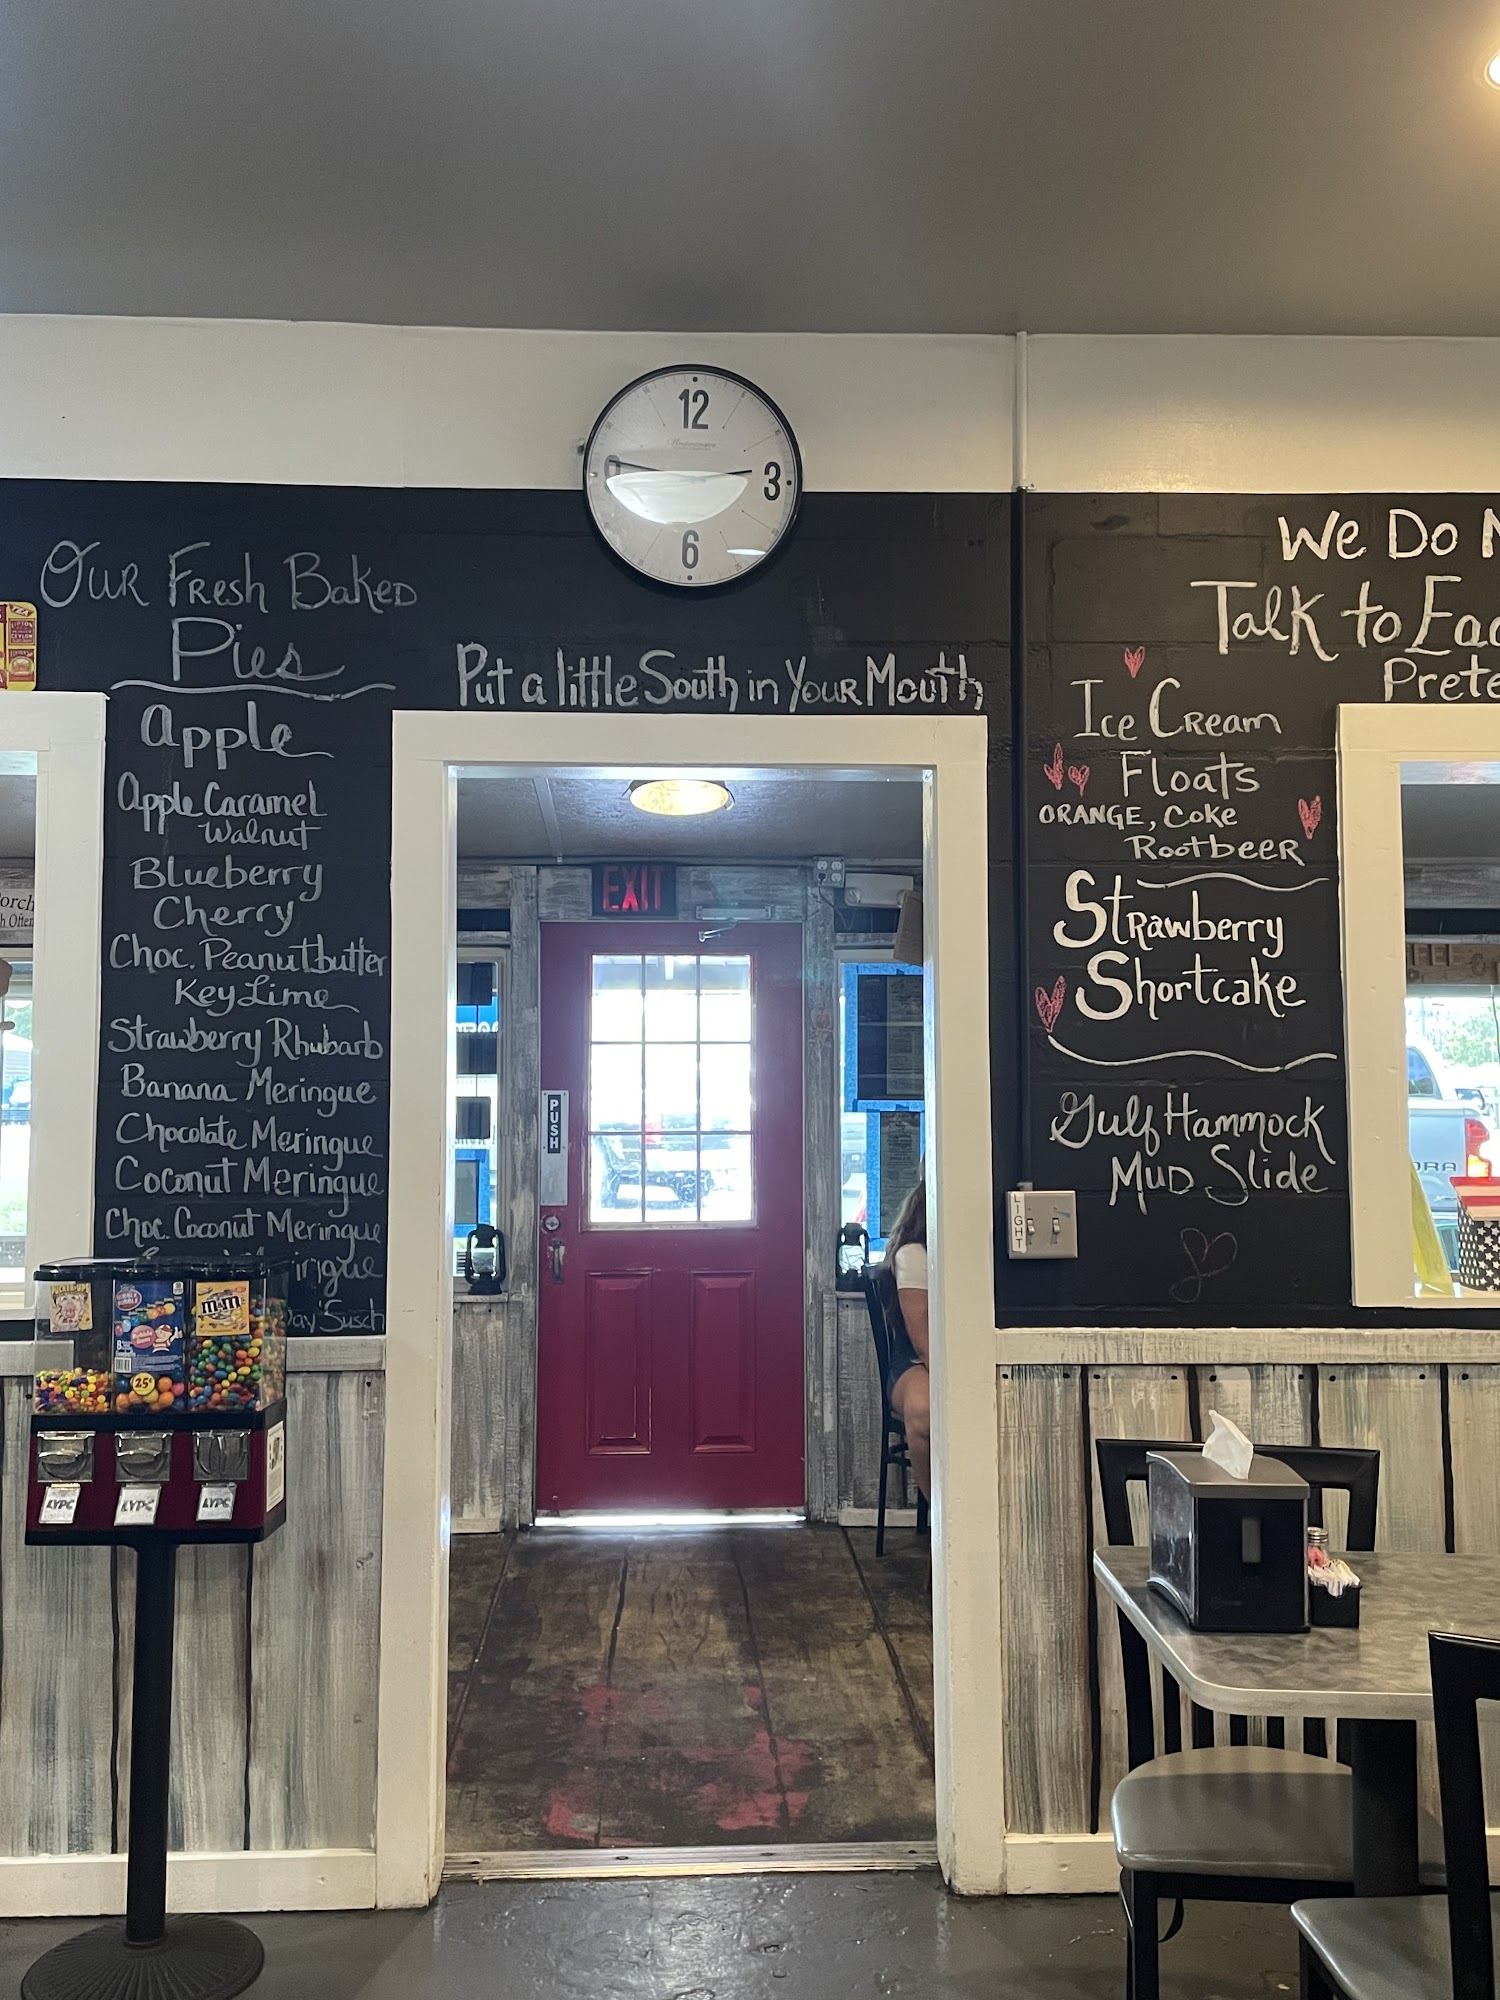 12
3
6
Our Fresh Baked
Pies
Apple
Apple Caramel
Walnut
Blueberry
Cherry
Choc. Peanutbutter
Key Lime
Strawberry Rhubarb
Banana Meringue
Chocolate Meringue
Coconut Meringue
Choc. Coconut Meringue
Put a little South in Your Mouth
EXIT
PUSH
We Do
Talk to
Ice Cream
Floats
ORANGE, Coke
Rootbeer
Strawberry
Shortcake
Gulf Hammock
Mud Slide
LIGHT
m&m's
25¢
LYPC
LYPC
LYPC